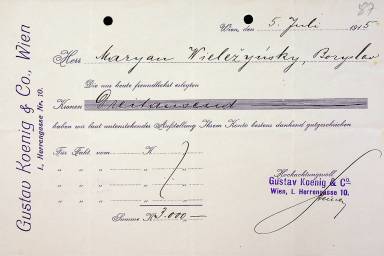 87
Wien, den 5. Juli 1915
Herr Maryan Wieleżyński, Boryslav
Die uns heute freundlichst erlegten
Kronen Dreitausend
haben wir laut untenstehender Aufstellung Ihrem Konto bestens dankend gutgeschrieben
Für Fakt. vom K
" " " "
" " " "
" " " "
Summe K 3.000.—
Hochachtungsvoll
Gustav Koenig & Co.
Wien, I. Herrengasse 10.
Gustav Koenig & Co., Wien
I., Herrengasse Nr. 10.